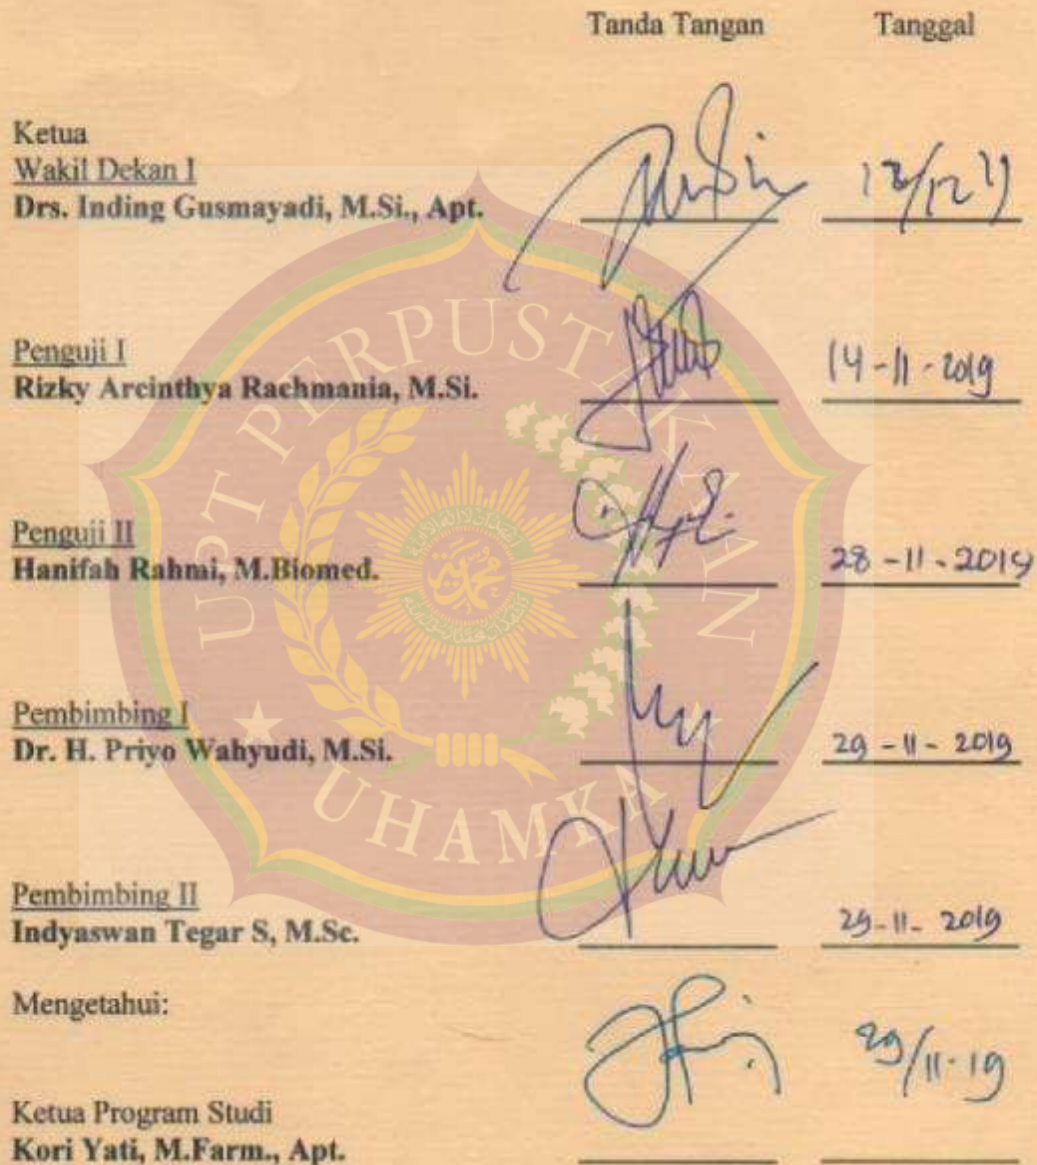 Tanda Tangan Tanggal
Ketua
Wakil Dekan I
Drs. Inding Gusmayadi, M.Si., Apt.
Penguji I
Rizky Arcinthya Rachmania, M.Si. 14-11-2019
Penguji II
Hanifah Rahmi, M.Biomed. 28-11-2019
Pembimbing I
Dr. H. Priyo Wahyudi, M.Si. 29-11-2019
Pembimbing II
Indyaswan Tegar S, M.Sc. 29-11-2019
Mengetahui:
29/11-19
Ketua Program Studi
Kori Yati, M.Farm., Apt.
UPT PERPUSTAKAAN
UHAMKA